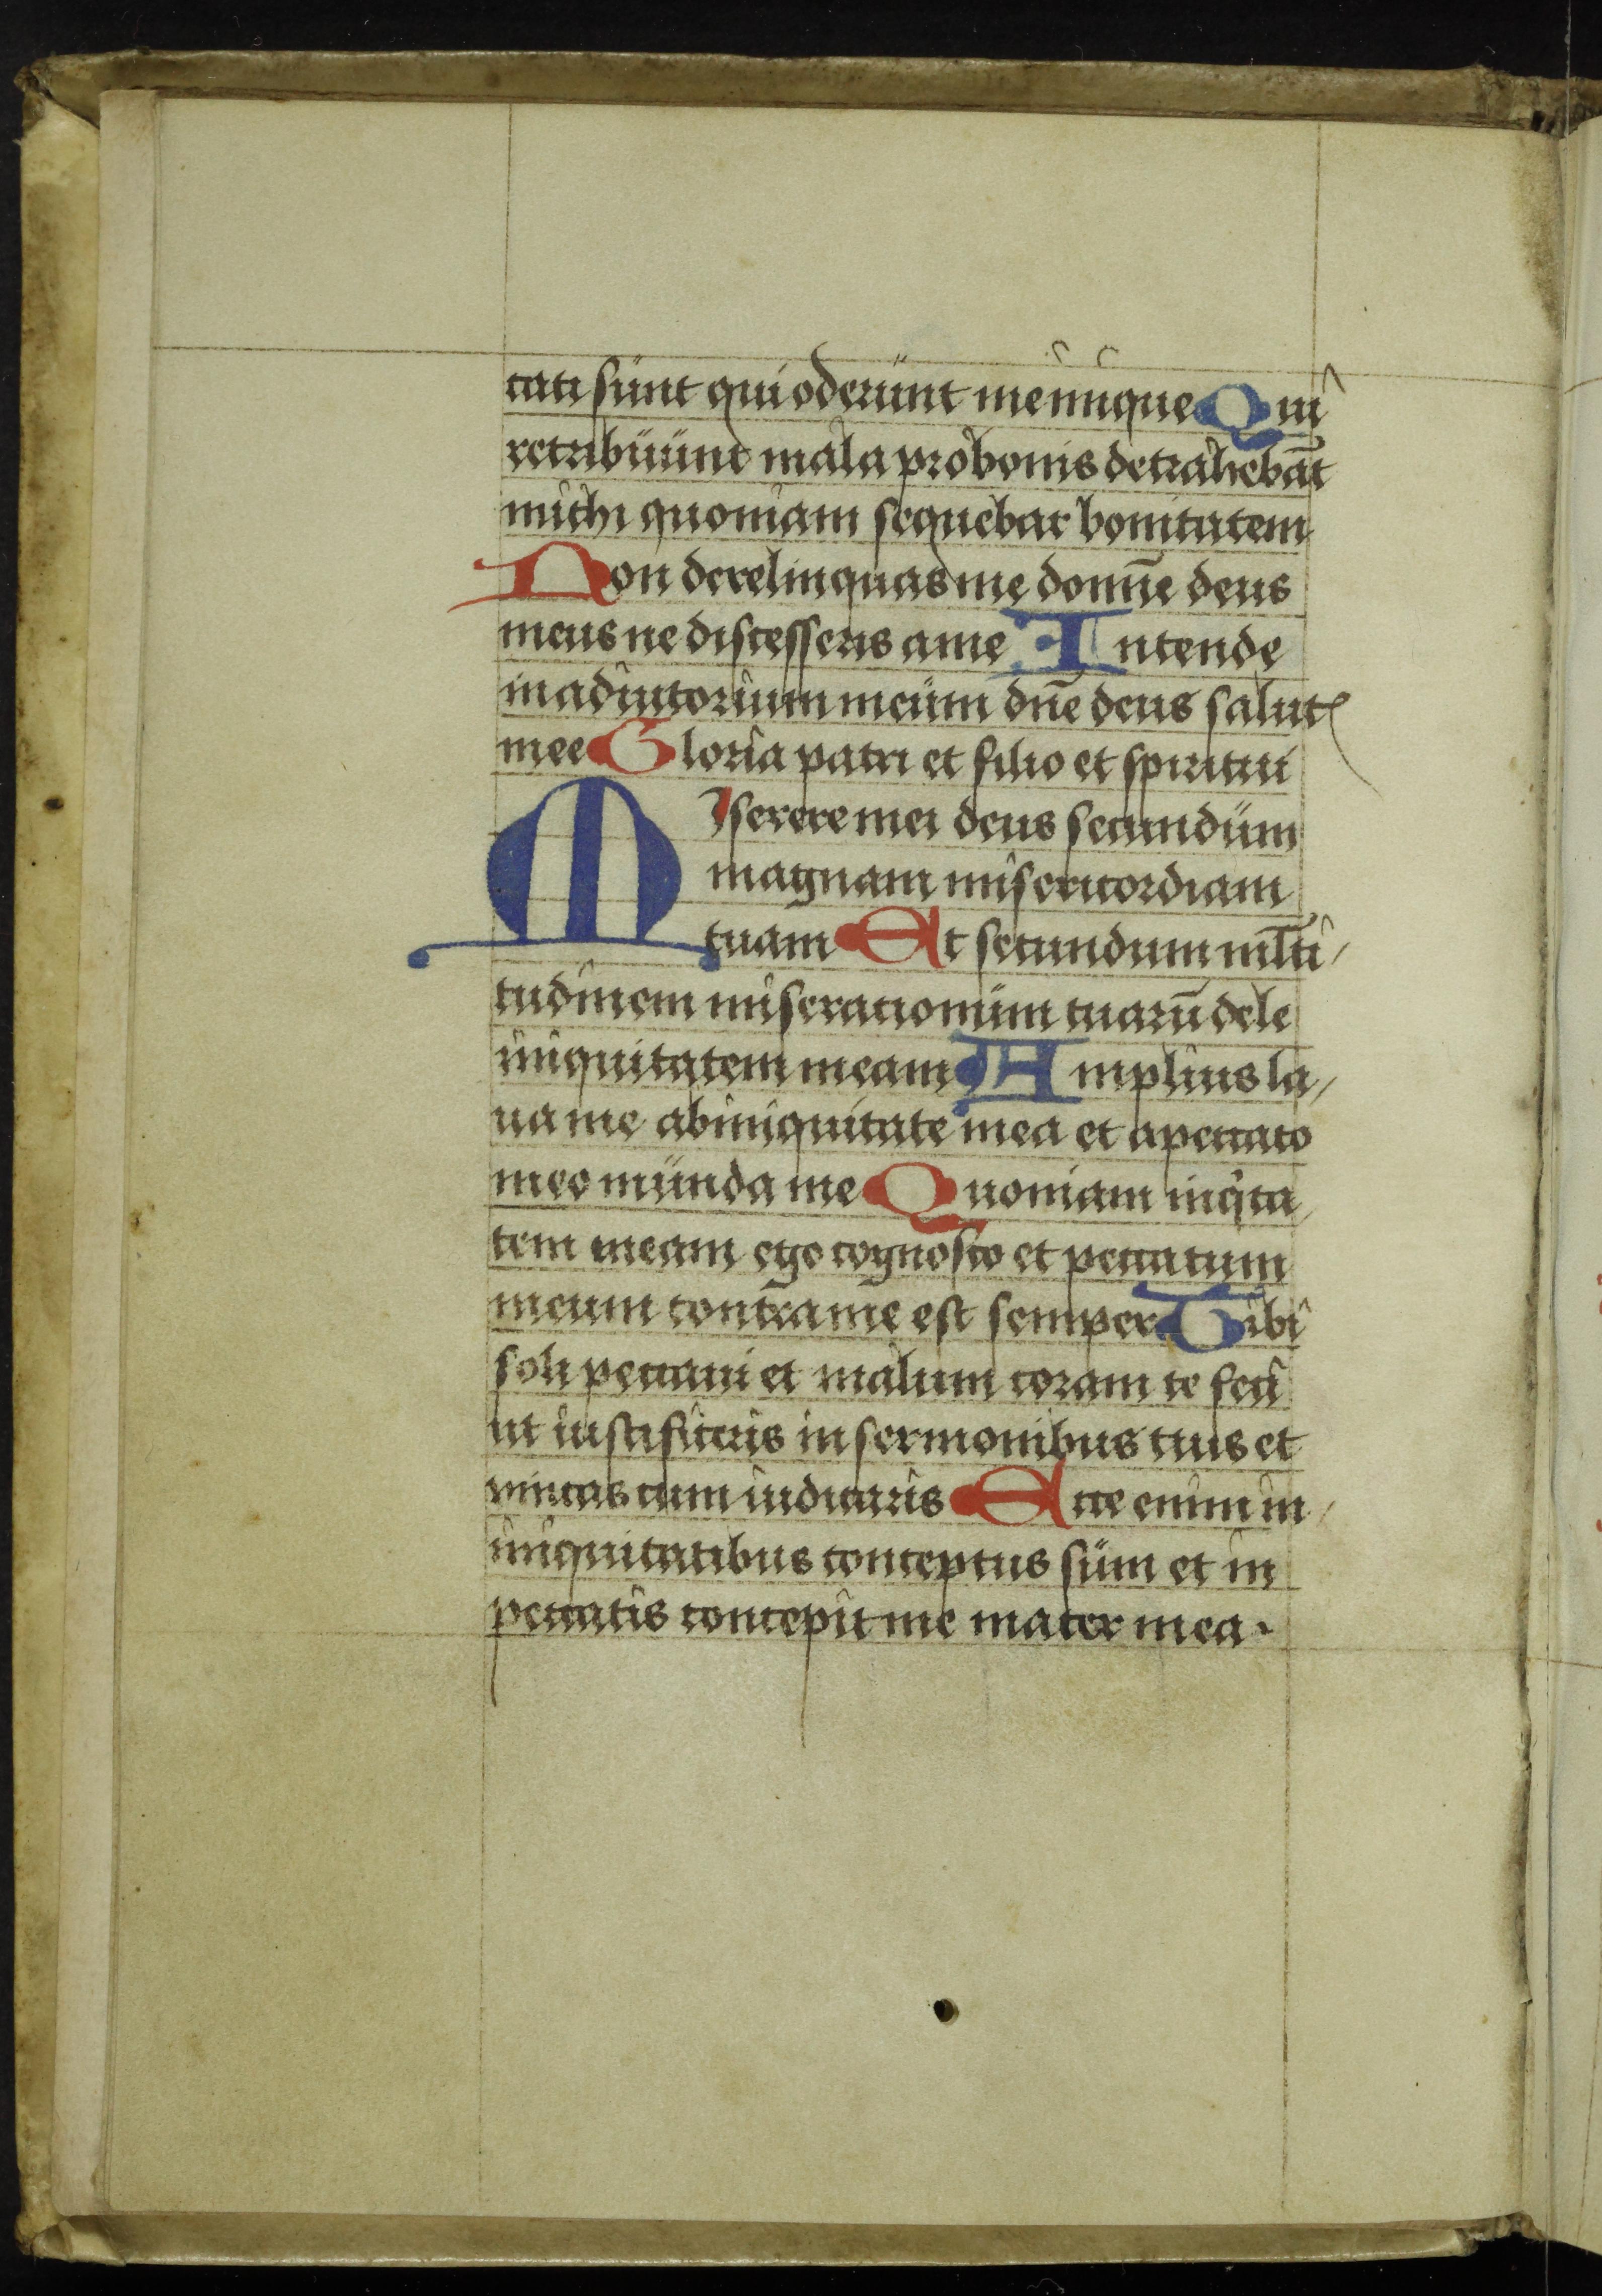 cati sunt qui oderunt me inique Qui
retribuunt mala pro bonis detrahebāt
michi quoniam sequebar bonitatem
Non derelinquas me domīe deus
meus ne discesseris a me Intende
in adiutorium meum dn̄e deus salutꝭ
mee Gloria patri et filio et spiritui
Miserere mei deus secundum
magnam misericordiam
tuam Et secundum ml̄ti/
tudinem miserationum tuarū dele
iniquitatem meam Amplius la/
ua me ab iniquitate mea et a peccato
meo munda me Quoniam iniqͥta/
tem meam ego cognosco et peccatum
meum contra me est semper Tibi
soli peccaui et malum coram te feci
ut iustificeris in sermonibus tuis et
vincas cum iudicaris Ecce enim in/
iniquitatibus conceptus sum et in
peccatis concepit me mater mea.